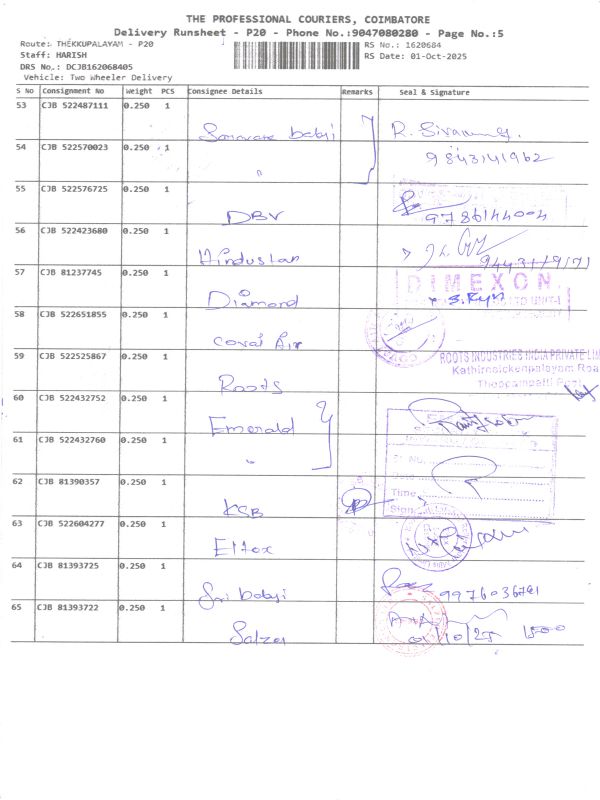 THE PROFESSIONAL COURIERS, COIMBATORE
Delivery Runsheet - P20 - Phone No.:9047080280 - Page No.:5
Route: THEKKUPALAYAM - P20
RS No.: 1620684
Staff: HARISH
RS Date: 01-Oct-2025
DRS No.: DCJB162068405
Vehicle: Two Wheeler Delivery
S No Consignment No Weight PCS Consignee Details Remarks Seal & Signature
53 CJB 522487111 0.250 1
babji R. 
54 CJB 522570023 0.250 1
9843141962
55 CJB 522576725 0.250 1
DBV 9786144004
56 CJB 522423680 0.250 1
Hindustan
57 CJB 81237745 0.250 1
DIMEXON
Diamond
58 CJB 522651855 0.250 1
Covai Air
59 CJB 522525867 0.250 1
ROOTS INDUSTRIES INDIA PRIVATE LIM
Kathirnaickenpalayam Roa
Thoppampatti Post
Roots
60 CJB 522432752 0.250 1
Emerald
61 CJB 522432760 0.250 1
"
62 CJB 81390357 0.250 1
Time
KSB
63 CJB 522604277 0.250 1
Eltex
64 CJB 81393725 0.250 1
Sri babji 9976036781
65 CJB 81393722 0.250 1
Salzer 01/10/25 1500